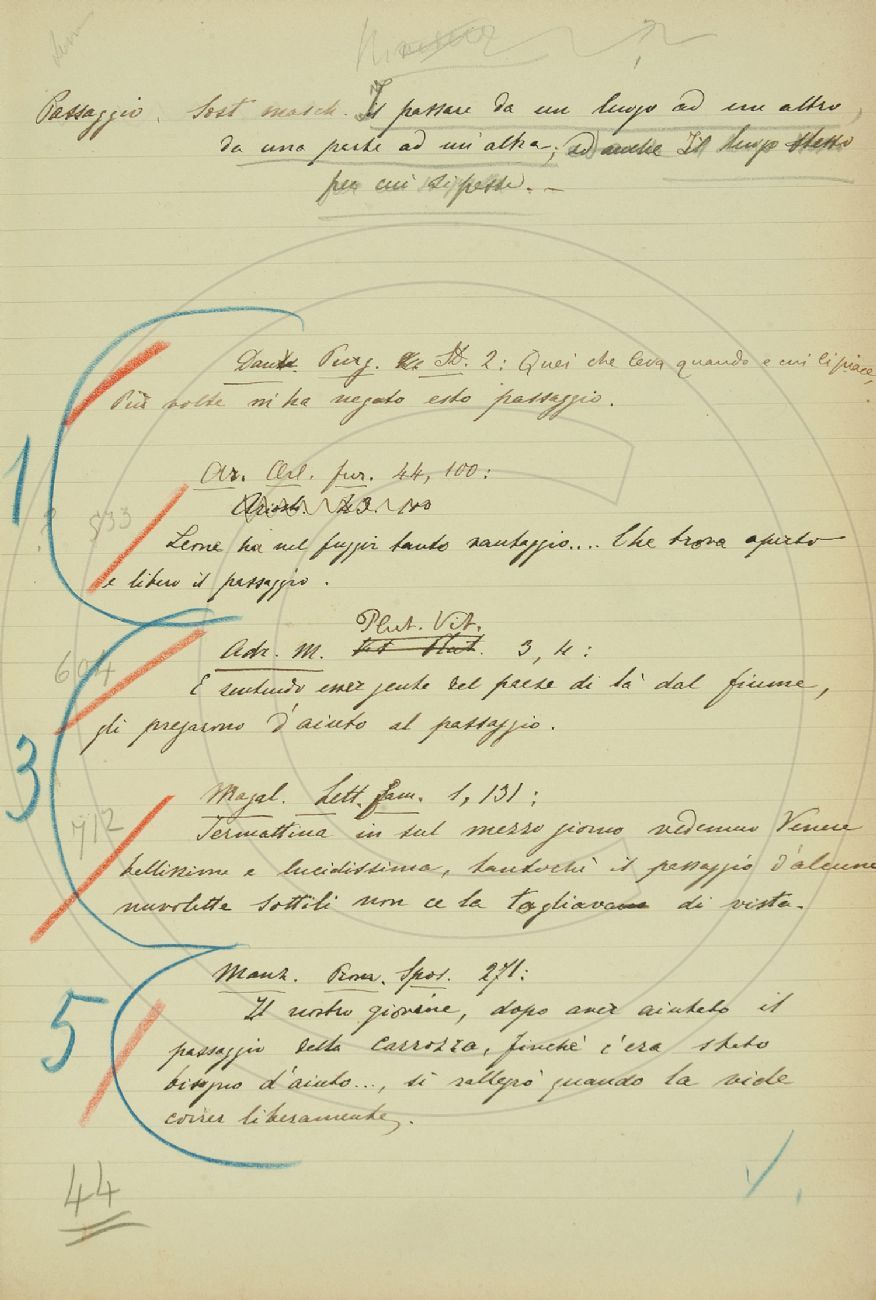 Passaggio. Sost. masch. Il passare da un luogo ad un altro,
da una parte ad un'altra; ed anche Il luogo stesso
per cui si passa. —
Dante Purg. 2: Quei che leva quando e cui li piace,
Più volte m'ha negato esto passaggio.
Ar. Orl. fur. 44, 100:
Ariost. 43. 100
1
533
Leone ha nel fuggir tanto vantaggio.... Che trova aperto
e libero il passaggio.
Plut. Vit.
Adr. M. Vit. Plut. 3, 4:
604
E sentendo esser gente del paese di là dal fiume,
gli pregarono d'aiuto al passaggio.
3
Magal. Lett. fam. 1, 131:
712
Iermattina in sul mezzo giorno vedemmo Venere
bellissima e lucidissima, tantochè il passaggio d'alcune
nuvolette sottili non ce la tagliava di vista.
Manz. Prom. Spos. 271:
5
Il nostro giovine, dopo aver aiutato il
passaggio della carrozza, finchè c'era stato
bisogno d'aiuto..., si rallegrò quando la vide
correr liberamente.
44